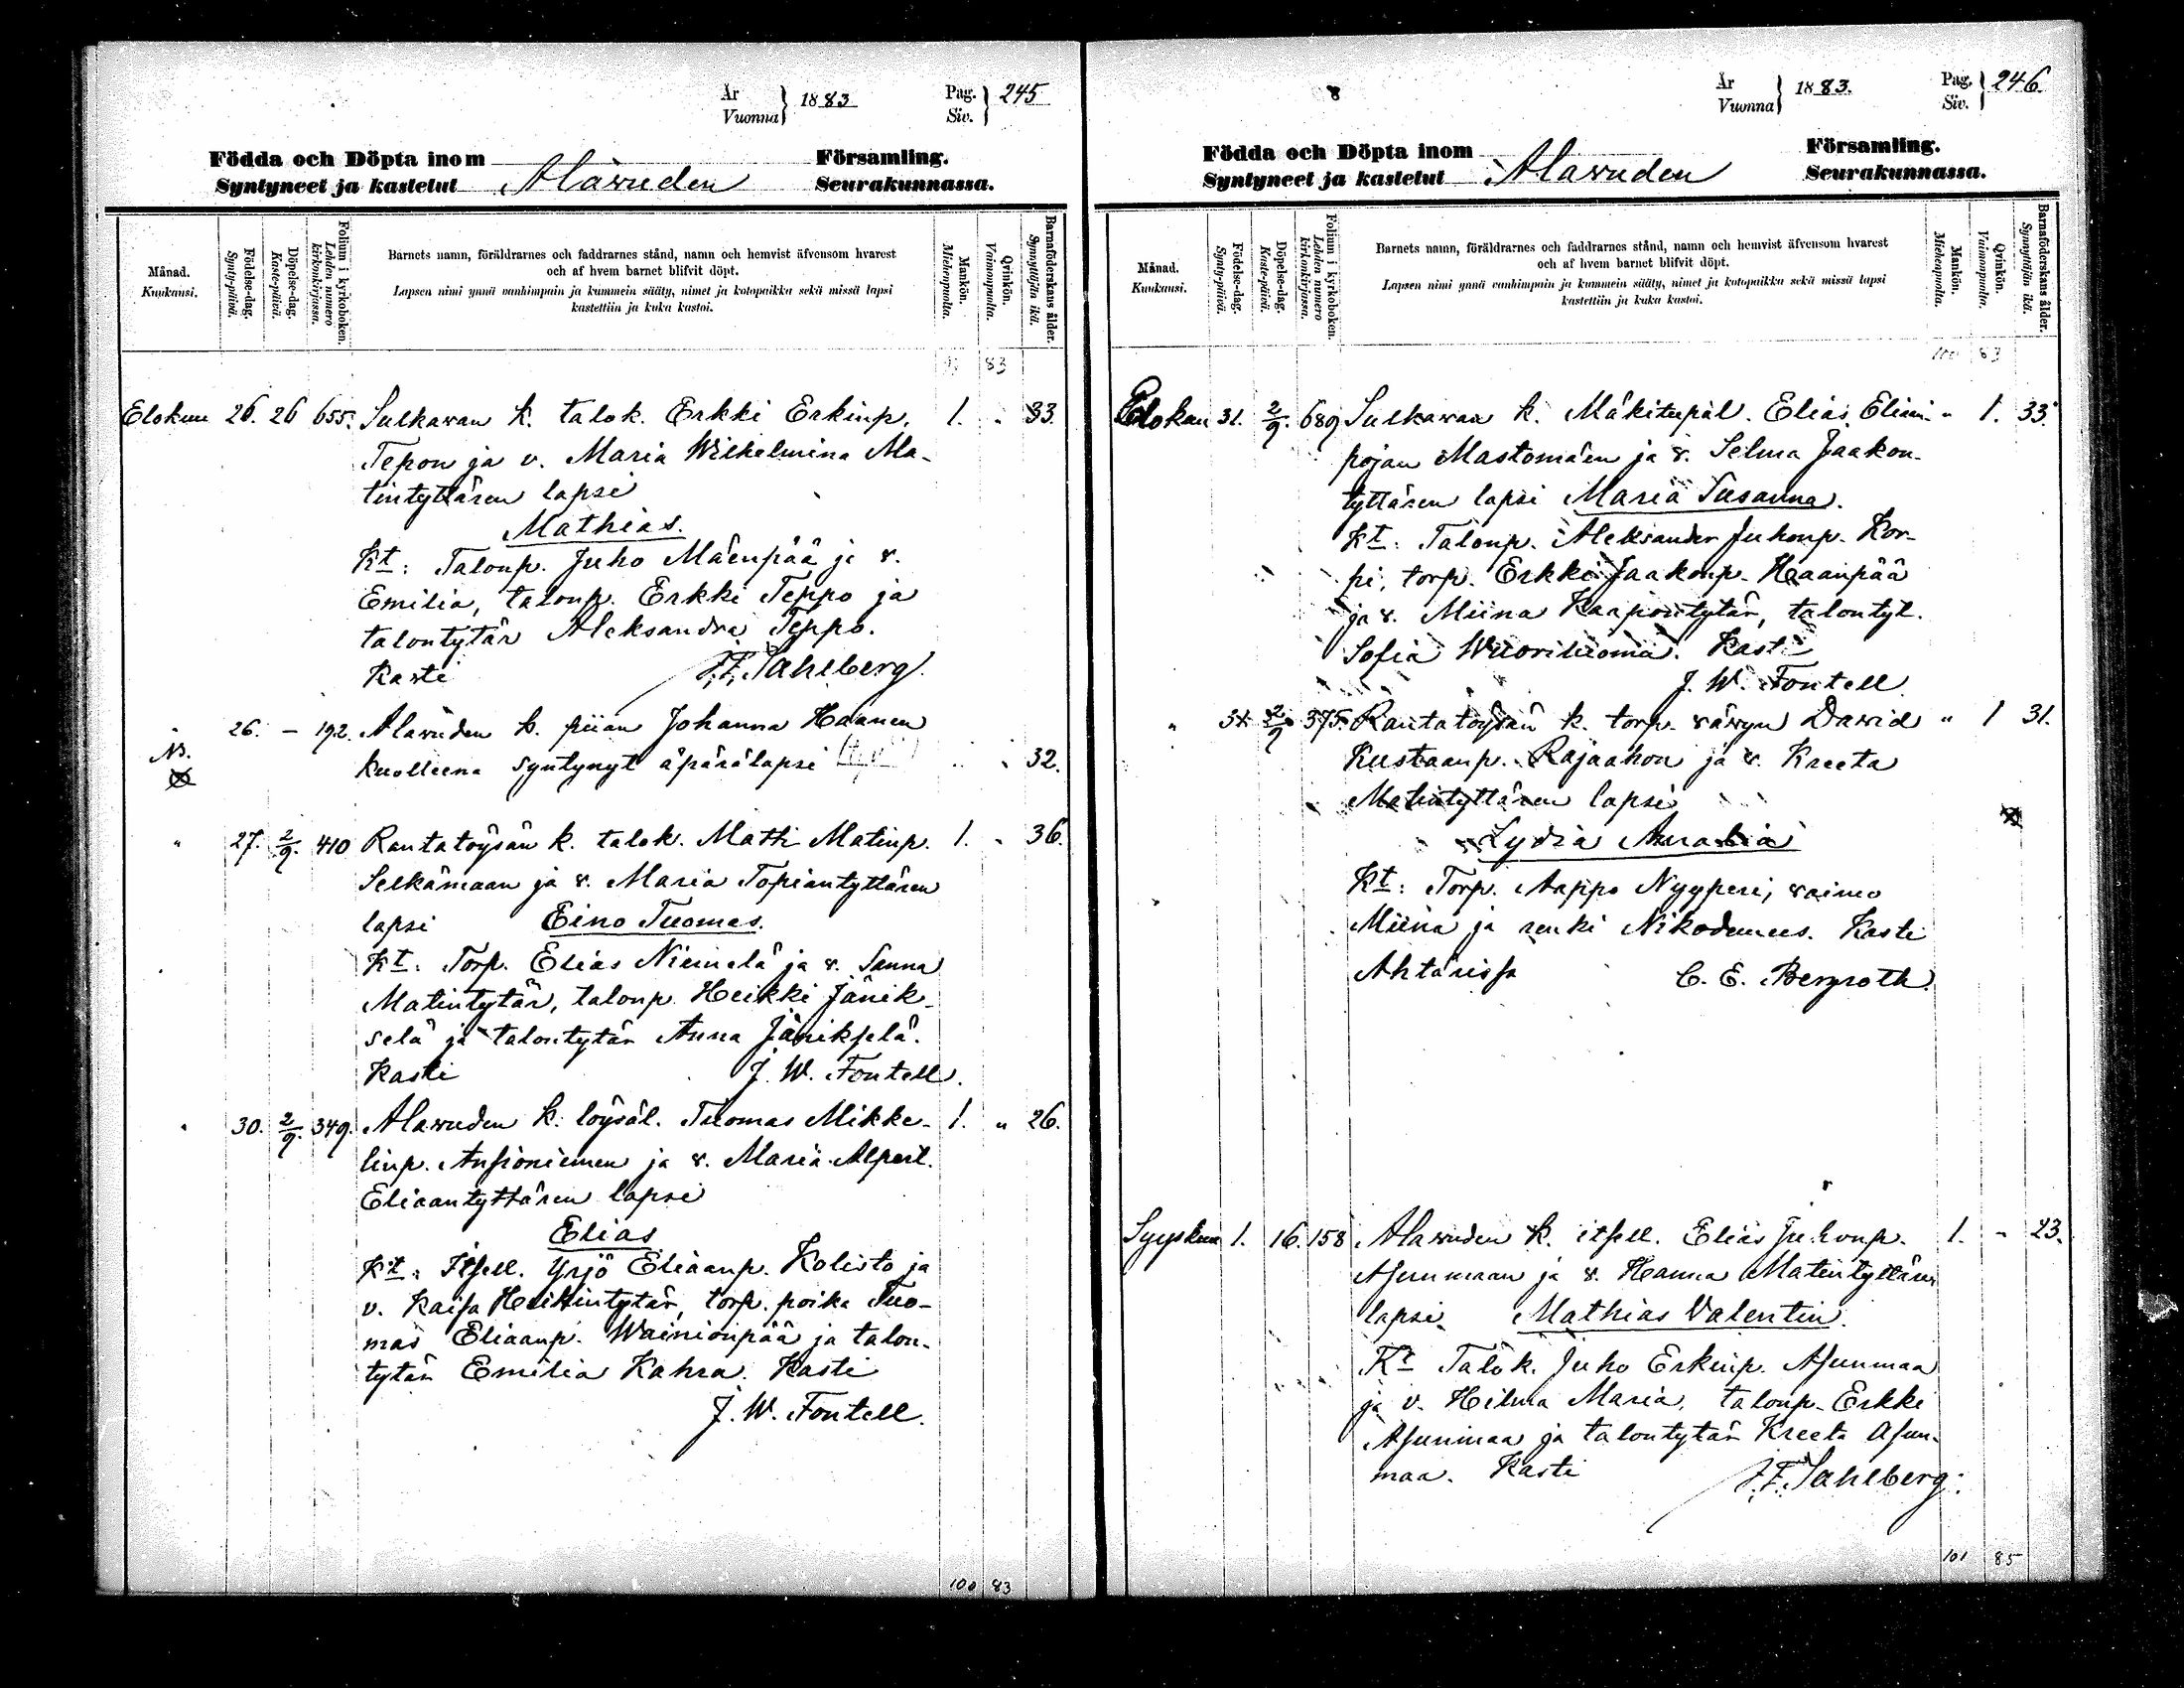 År
Vuonna } 1883
Pag.
Siv. } 245
Födda och Döpta inom Församling.
Syntyneet ja kastetut Alawuden Seurakunnassa.
Månad.
Kuukausi.
Födelse-dag.
Synty-päivä.
Döpelse-dag.
Kaste-päivä.
Folium i kyrkoboken.
Lehden numero kirkonkirjassa.
Barnets namn, föräldrarnes och faddrarnes stånd, namn och hemvist äfvensom hvarest
och af hvem barnet blifvit döpt.
Lapsen nimi ynnä vanhimpain ja kummein sääty, nimet ja kotopaikka sekä missä lapsi
kastettiin ja kuka kastoi.
Mankön.
Miehenpuolta.
Qvinkön.
Vaimonpuolta.
Barnaföderskans ålder.
Synnyttäjän ikä.
83
Elokuu 26. 26 655. Sulkawan k. talok. Erkki Erkinp. 1. " 33.
Tepon ja v. Maria Wilhelmina Ma-
tintyttären lapsi
Mathias.
Kt: Talonp. Juho Mäenpää ja v.
Emilia, talonp. Erkki Teppo ja
talontytär Aleksandra Teppo.
Kasti J. F. Sahlberg.
" 26. – 192. Alawuden k. piian Johanna Haanen
NB. kuolleena syntynyt äpärälapsi " " 32.
" 27. 2/9. 410 Rantatöysän k. talok. Matti Matinp. 1. " 36.
Selkämaan ja v. Maria Topiantyttären
lapsi Eino Tuomas.
Kt: Torp. Elias Niemelä ja v. Sanna
Matintytär, talonp. Heikki Jänik-
selä ja talontytär Anna Jänikselä.
Kasti J. W. Fontell.
" 30. 2/9. 349. Alawuden k. löysäl. Tuomas Mikke- 1. " 26.
linp. Ansioniemen ja v. Maria Alpert.
Eliaantyttären lapsi
Elias
Kt: Itsell. Yrjö Eliaanp. Kolisto ja
v. Kaisa Heikintytär, torp. poika Tuo-
mas Eliaanp. Wainionpää ja talon-
tytär Emilia Kahra. Kasti
J. W. Fontell.
100 83
År
Vuonna } 1883.
Pag.
Siv. } 246
Födda och Döpta inom Församling.
Syntyneet ja kastetut Alawuden Seurakunnassa.
Månad.
Kuukausi.
Födelse-dag.
Synty-päivä.
Döpelse-dag.
Kaste-päivä.
Folium i kyrkoboken.
Lehden numero kirkonkirjassa.
Barnets namn, föräldrarnes och faddrarnes stånd, namn och hemvist äfvensom hvarest
och af hvem barnet blifvit döpt.
Lapsen nimi ynnä vanhimpain ja kummein sääty, nimet ja kotopaikka sekä missä lapsi
kastettiin ja kuka kastoi.
Mankön.
Miehenpuolta.
Qvinkön.
Vaimonpuolta.
Barnaföderskans ålder.
Synnyttäjän ikä.
100 83
Elokuu 31. 2/9. 689 Sulkawan k. Mäkitupal. Elias Eliaan- " 1. 33.
pojan Mastomäen ja v. Selma Jaakon-
tyttären lapsi Maria Susanna.
Kt: Talonp. Aleksander Juhonp. Kor-
pi, torp. Erkki Jaakonp. Haanpää
ja v. Miina Kaapontytär, talontyt.
Sofia Wuoriluoma. Kasti
J. W. Fontell.
" 31. 2/9. 375. Rantatöysän k. torp. vävyn David " 1 31.
Kustaanp. Rajaahon ja v. Kreeta
Matintyttären lapsi
Lydia Amalia
Kt: Torp. Aappo Nyyperi, vaimo
Miina ja renki Nikodemus. Kasti
Ahtärissä C. E. Bergroth.
Syyskuu 1. 16. 158 Alawuden k. itsell. Elias Juhonp. 1. " 23.
Asunmaan ja v. Hanna Matintyttären
lapsi Mathias Valentin.
Kt Talok. Juho Erkinp. Asunmaa
ja v. Hilma Maria, talonp. Erkki
Asunmaa ja talontytär Kreeta Asun-
maa. Kasti J. F. Sahlberg.
101 85